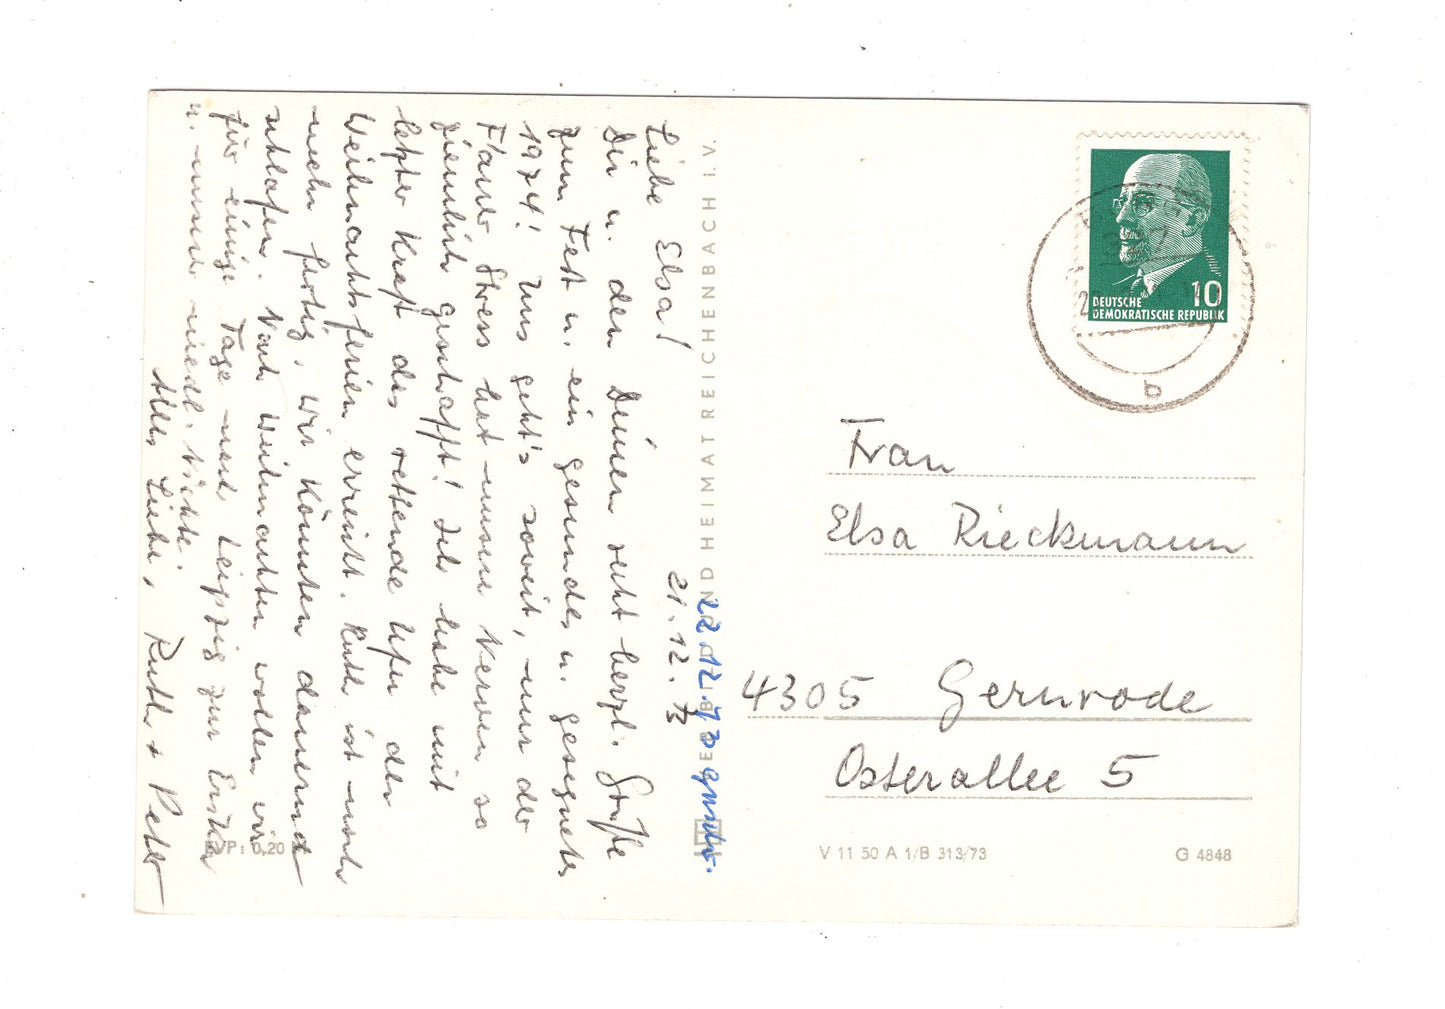 21.12.73
Liebe Elsa!
Dir u. den Deinen recht herzl. Grüße
zum Fest u. ein gesundes u. gesegnetes
1974! Uns geht's soweit, nur der
Harro Stress hat unsere Nerven so
ziemlich geschafft! Ich habe mit
letzter Kraft das rettende Ufer der
Weihnachtsferien erreicht. Ruth ist noch
mehr fertig. Wir könnten dauernd
schlafen. Nach Weihnachten wollen wir
für einige Tage nach Leipzig zur Erika
u. unserer niedl. Nichte.
Alles Liebe, Ruth + Peter
22.12.73
BILD UND HEIMAT REICHENBACH I.V.
EVP: 0,20
DEUTSCHE
DEMOKRATISCHE REPUBLIK
10
b
Frau
Elsa Rieckmann
4305 Gernrode
Osterallee 5
V 11 50 A 1/B 313/73
G 4848